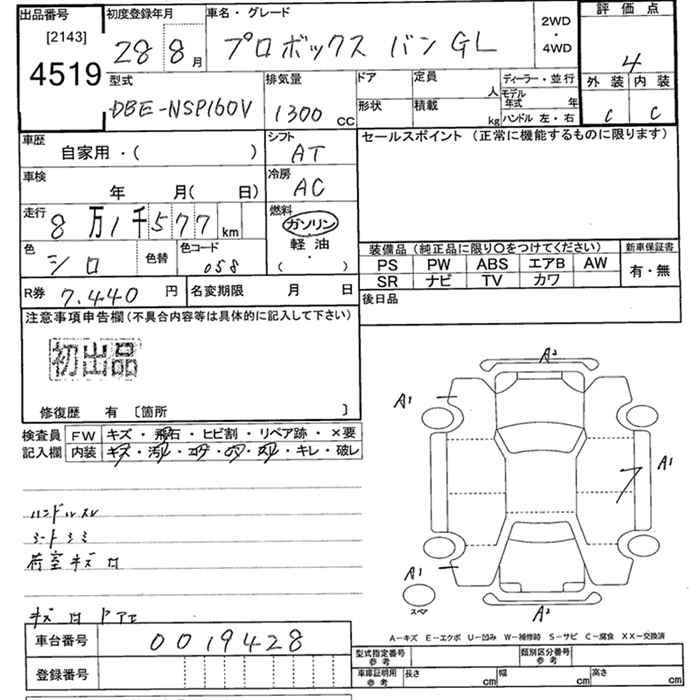 出品番号
[2143]
4519
初度登録年月
28 8月
車名・グレード
プロボックス バン GL
2WD
・
4WD
評価点
4
外装 内装
C C
型式
DBE-NSP160V
排気量
1300 CC
ドア
定員
人
形状
積載
kg
ディーラー・並行
モデル年式 年
ハンドル 左・右
車歴
自家用・( )
シフト
AT
セールスポイント (正常に機能するものに限ります)
車検
年 月( 日)
冷房
AC
走行
8万1千577km
燃料
ガソリン
軽油
・
( )
色
シロ
色替
色コード
058
装備品 (純正品に限り○をつけてください)
PS PW ABS エアB AW
SR ナビ TV カワ
新車保証書
有・無
R券 7.440 円
名変期限 月 日
後日品
注意事項申告欄(不具合内容等は具体的に記入して下さい)
初出品
修復歴 有 〔箇所 〕
検査員
記入欄
FW キズ・飛石・ヒビ割・リペア跡・×要
内装 キズ・汚レ・コゲ・穴・スレ・キレ・破レ
ハンドルスレ
シートシミ
荷室キズ
A2
A1
A1
A1
スペア
A2
A-キズ E-エクボ U-凹み W-補修跡 S-サビ C-腐食 XX-交換済
車台番号 0019428
登録番号
型式指定番号
参考
類別区分番号
参考
車庫証明用
参考
長さ cm
幅 cm
高さ cm